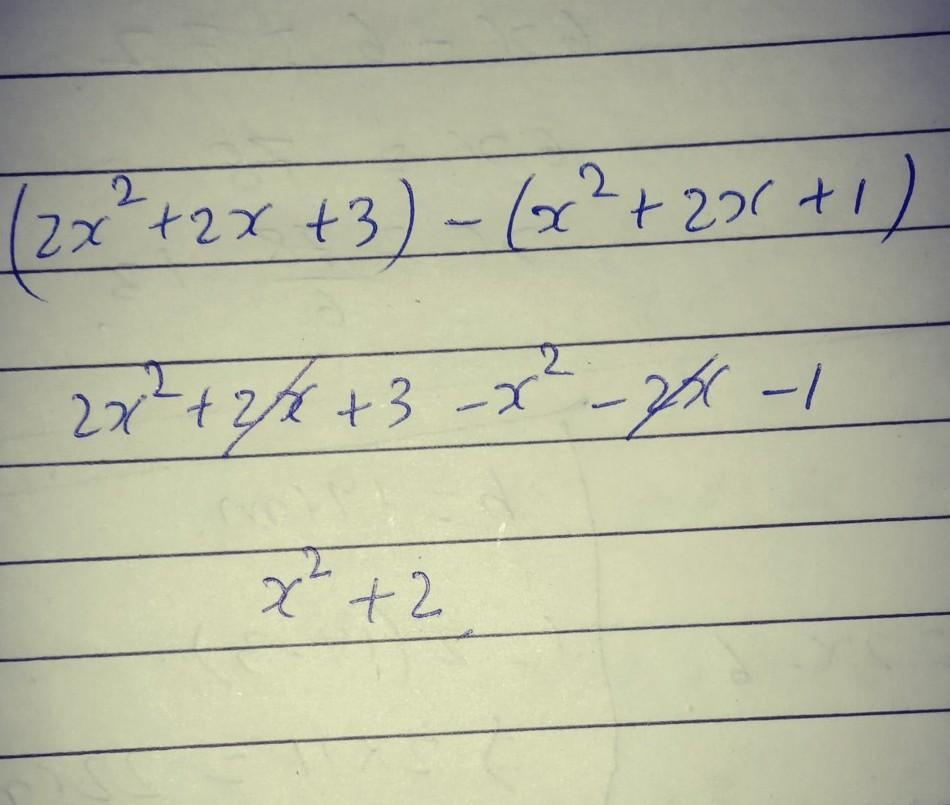 (2x² + 2x + 3) - (x² + 2x + 1)
2x² + 2x + 3 - x² - 2x - 1
x² + 2